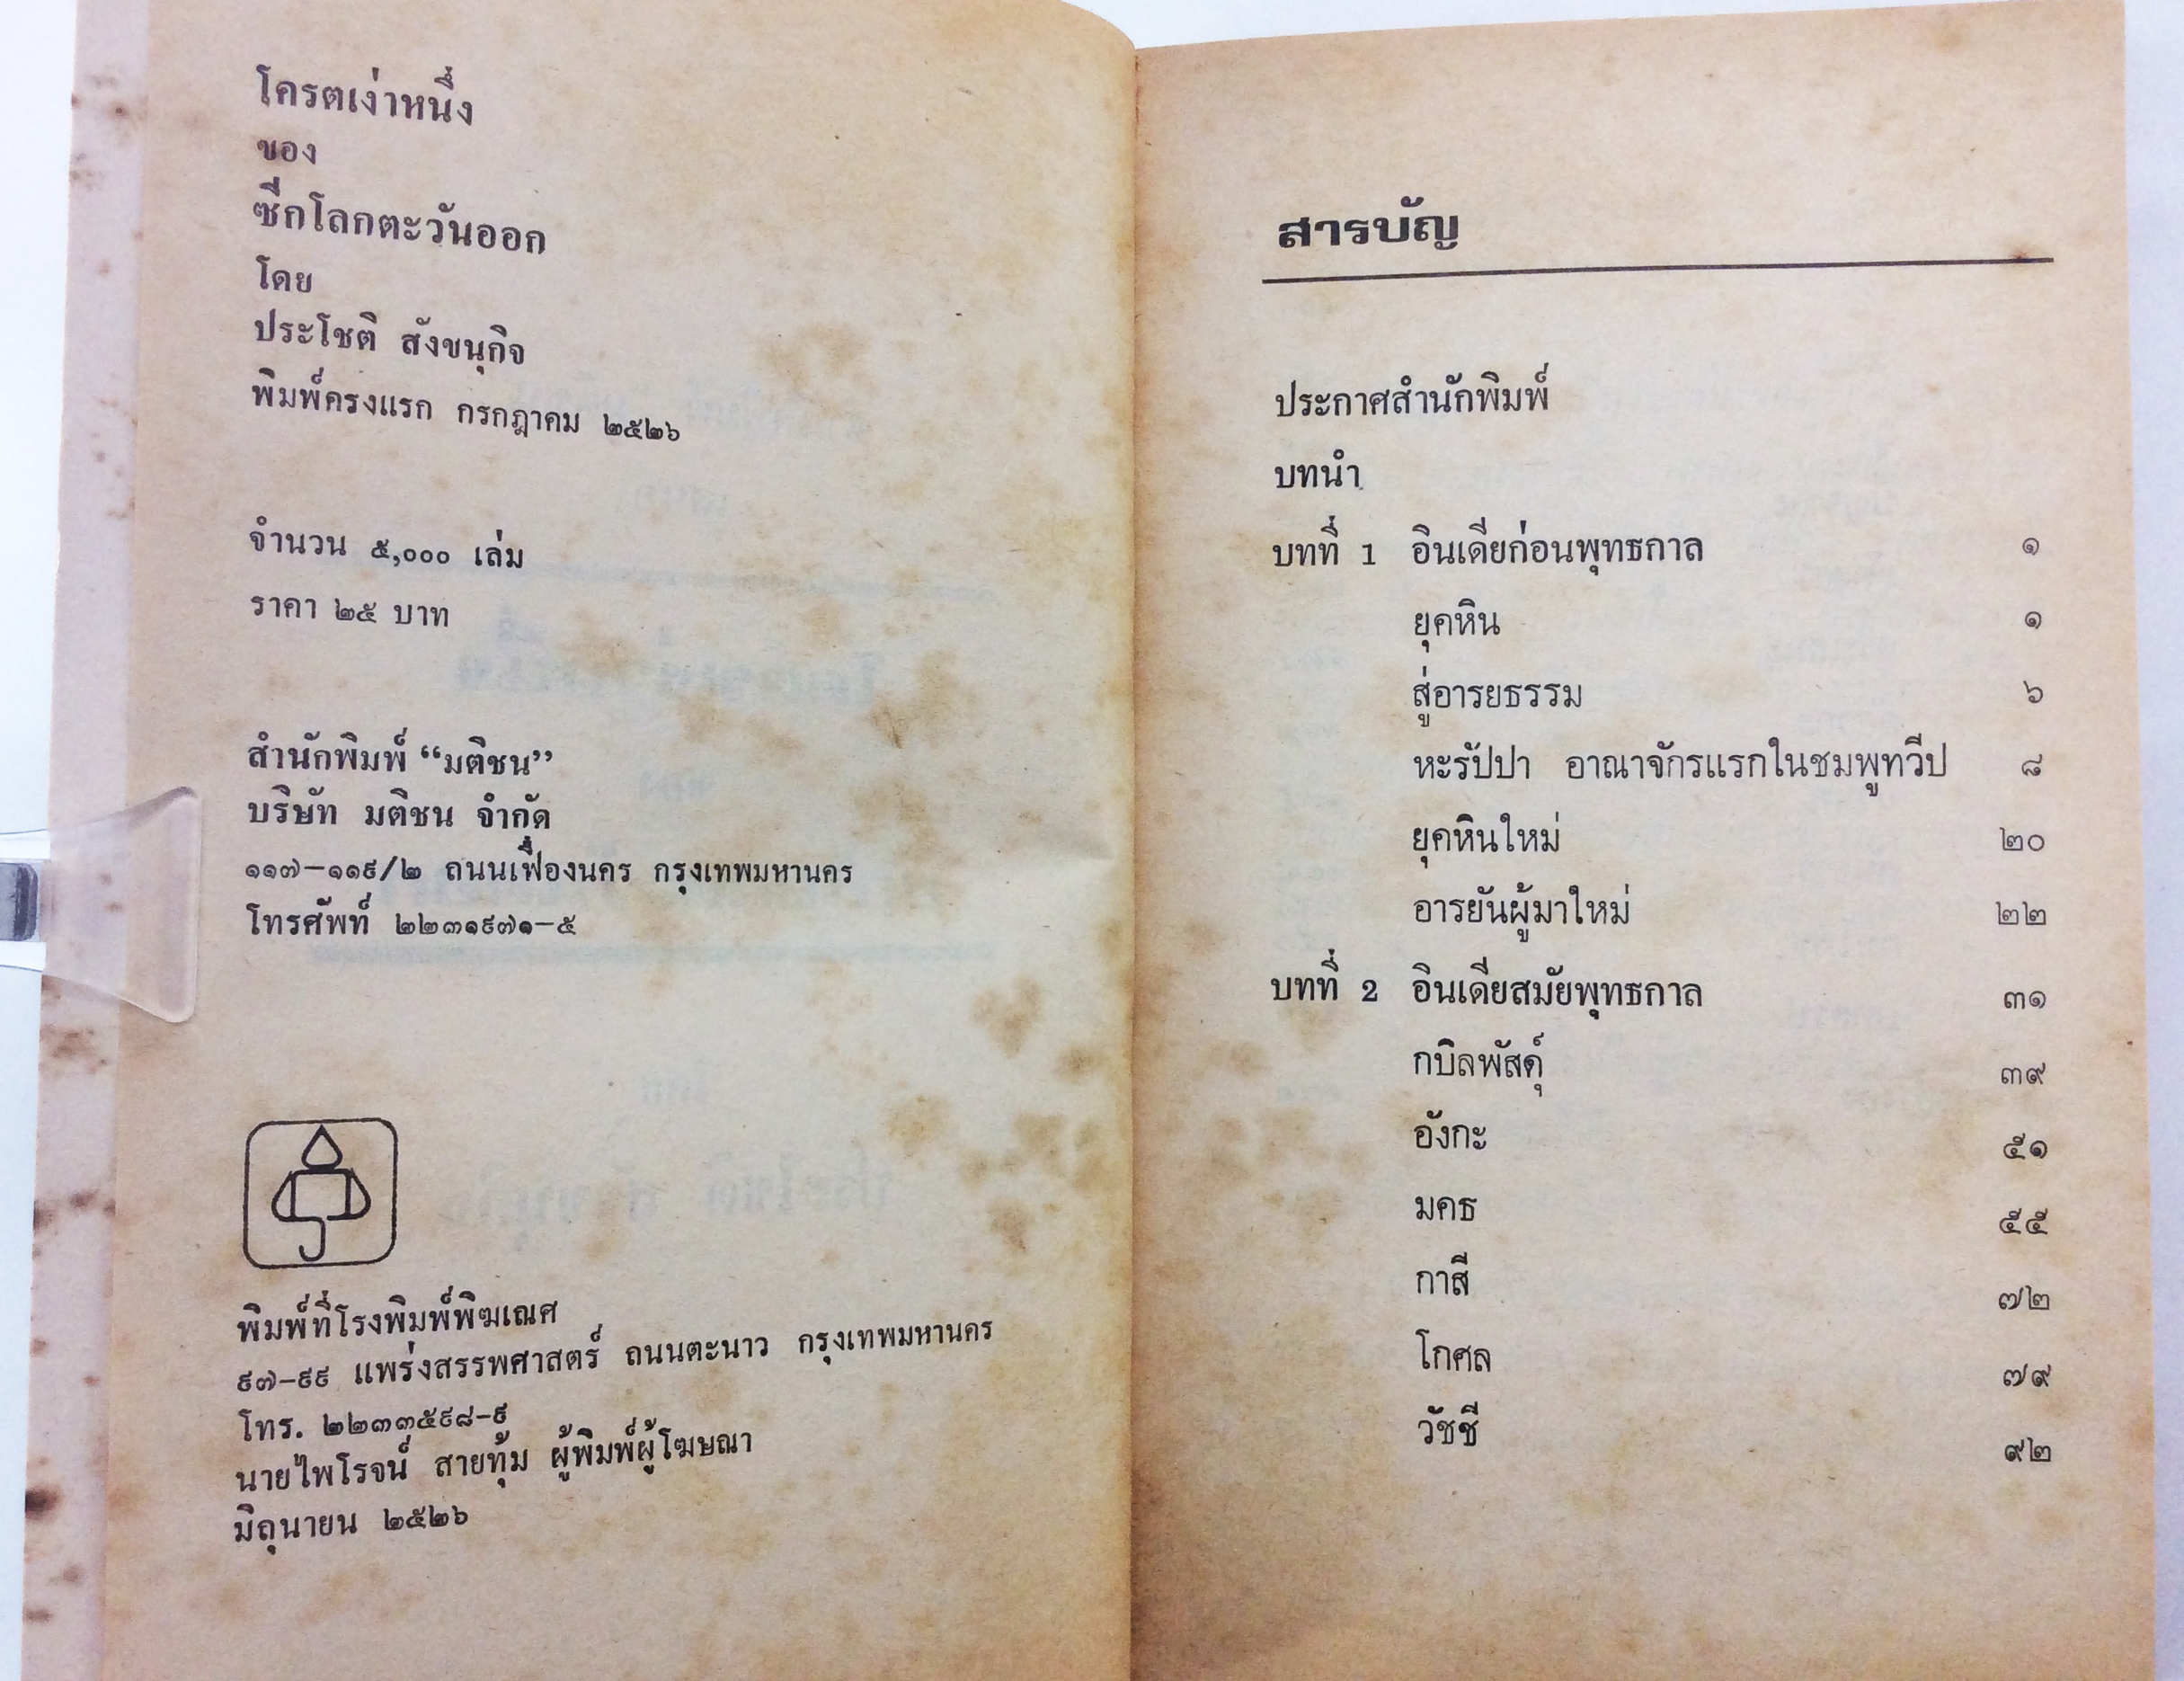 โครตเง่าหนึ่ง
ของ
ซีกโลกตะวันออก
โดย
ประโชติ สังขนุกิจ
พิมพ์ครงแรก กรกฎาคม ๒๕๒๖
จำนวน ๕,๐๐๐ เล่ม
ราคา ๒๕ บาท
สำนักพิมพ์ “มติชน”
บริษัท มติชน จำกัด
๑๑๗–๑๑๙/๒ ถนนเฟื่องนคร กรุงเทพมหานคร
โทรศัพท์ ๒๒๓๑๙๗๑–๕
พิมพ์ที่โรงพิมพ์พิฆเณศ
๙๗–๙๙ แพร่งสรรพศาสตร์ ถนนตะนาว กรุงเทพมหานคร
โทร. ๒๒๓๓๕๙๘–๙
นายไพโรจน์ สายทุ้ม ผู้พิมพ์ผู้โฆษณา
มิถุนายน ๒๕๒๖
สารบัญ
ประกาศสำนักพิมพ์
บทนำ
บทที่ 1 อินเดียก่อนพุทธกาล ๑
ยุคหิน ๑
สู่อารยธรรม ๖
หะรัปปา อาณาจักรแรกในชมพูทวีป ๘
ยุคหินใหม่ ๒๐
อารยันผู้มาใหม่ ๒๒
บทที่ 2 อินเดียสมัยพุทธกาล ๓๑
กบิลพัสดุ์ ๓๙
อังกะ ๕๑
มคธ ๕๕
กาสี ๗๒
โกศล ๗๙
วัชชี ๙๒